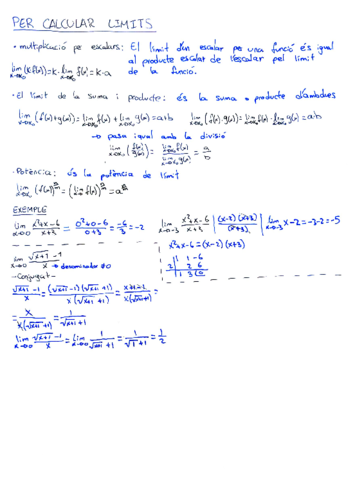 PER CALCULAR LIMITS
• multiplicació pe escalars: El límit d'un escalar pe una funció és igual
al producte escalar de l'escalar pel límit
de la funció.
lim x→x₀ (K·f(x)) = K· lim x→x₀ f(x) = K·a
• El límit de la suma i producte: és la suma o producte d'ambdues
lim x→x₀ (f(x)+g(x)) = lim x→x₀ f(x) + lim x→x₀ g(x) = a+b lim x→x₀ (f(x)·g(x)) = lim x→x₀ f(x)· lim x→x₀ g(x) = a·b
→ passa igual amb la divisió
lim x→x₀ (f(x)/g(x)) = lim x→x₀ f(x) / lim x→x₀ g(x) = a/b
• Potència: és la potència de límit
EXEMPLE
lim x→0 x²+x-6 / x+3 = 0²+0-6 / 0+3 = -6/3 = -2 lim x→-3 x²+x-6 / x+3 | (x-2)(x+3) / (x+3) | lim x→-3 x-2 = -3-2 = -5
x²+x-6 = (x-2)(x+3)
1 1 -6
2 2 6
1 3 0
lim x→0 √x+1 -1 / x → denominador ≠0
- Conjugat -
√x+1 -1 / x = (√x+1 -1)(√x+1 +1) / x(√x+1 +1) = x+1-1 / x(√x+1 +1) =
x / x(√x+1 +1) = 1 / √x+1 +1
lim x→0 √x+1 -1 / x = lim x→0 1 / √x+1 +1 = 1 / √1 +1 = 1/2